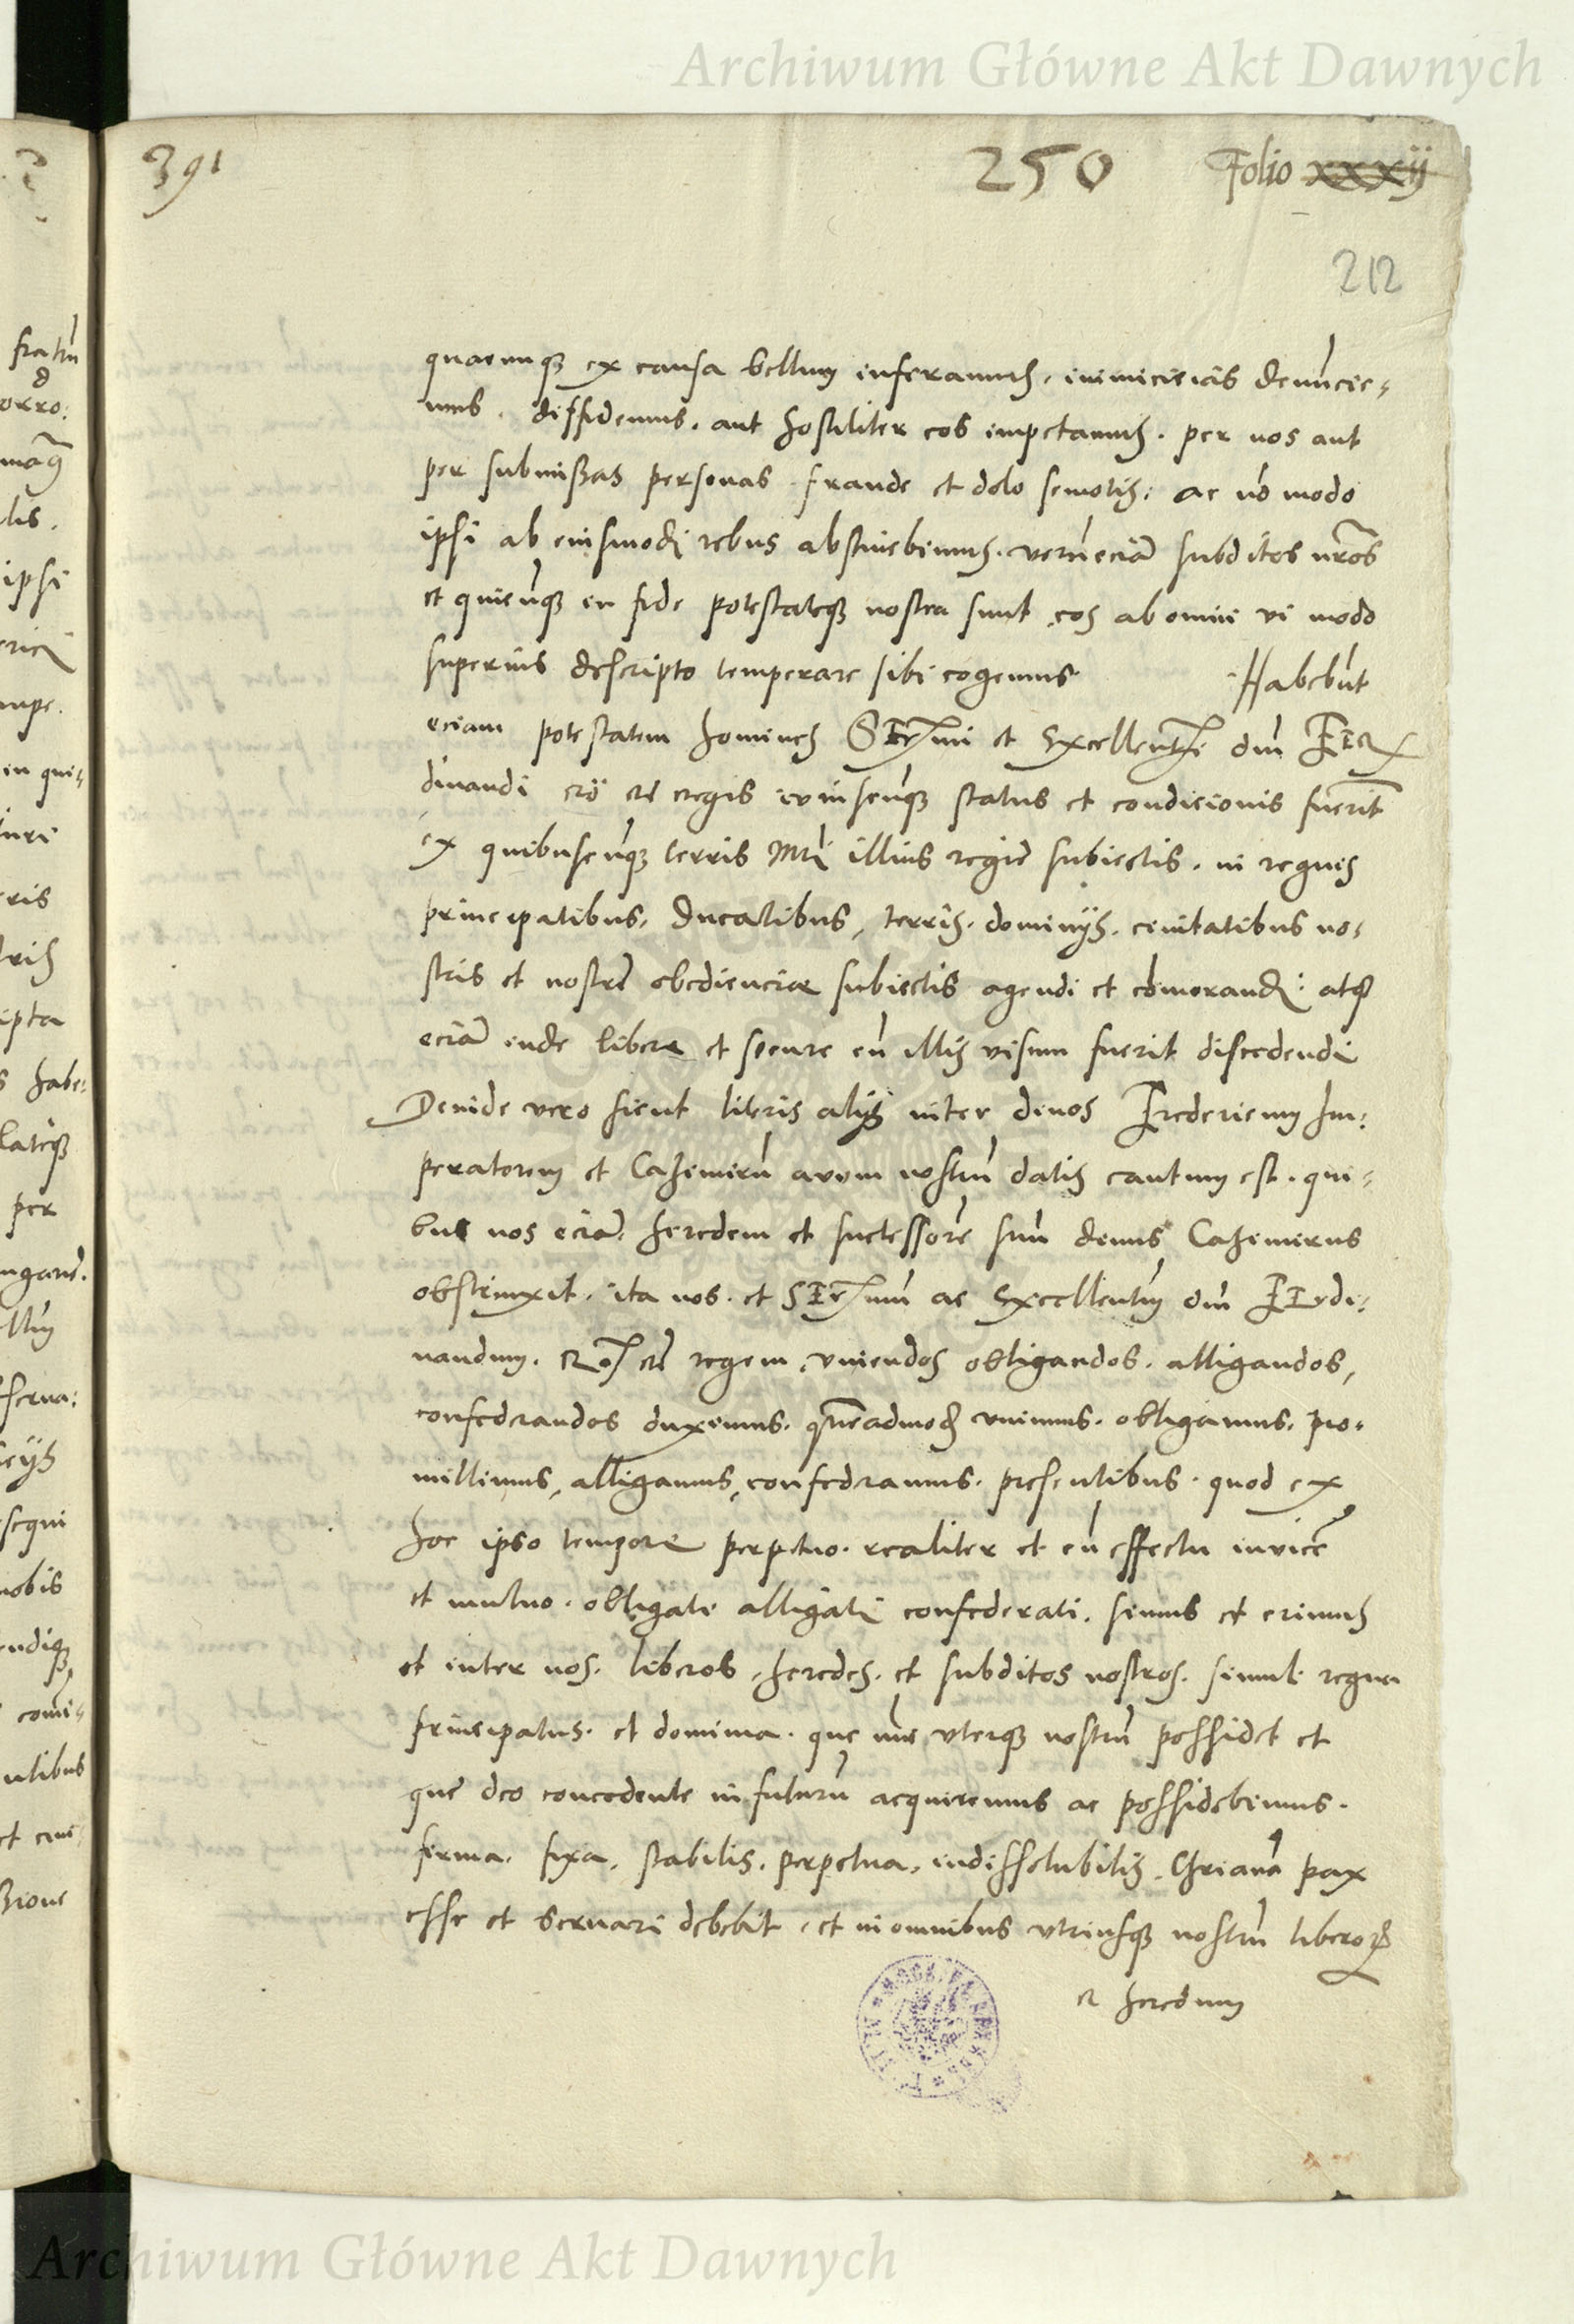 Archiwum Główne Akt Dawnych
391
250
Folio xxxij
212
quacunque ex causa bellum inferamus, inimicicias denuncie-
mus, diffidemus, aut hostiliter eos impetamus. per nos aut
per submissas personas fraude et dolo semotis: ac non modo
ipsi ab eiusmodi rebus abstinebimus. verum eciam subditos nros
et quicunque in fide potestateque nostra sunt eos ab omni vi modo
superius descripto temperare sibi cogemus Habebunt
eciam potestatem homines SEr.mi et Excellentis. dni FER
dinandi Ro. etc. regis cuiuscunque status et condicionis fuerint
ex quibuscunque terris Mti illius regie subiectis. in regnis
principatibus, ducatibus, terris. dominijs. civitatibus no-
stris et nostre obediencie subiectis agendi et comorandi: atque
eciam inde libere et secure cum illis visum fuerit discedendi
Deinde vero sicut literis alijs inter divos Fredericum Im:
peratorem et Cazimirum avum nostrum datis cautum est. qui-
bus nos eciam heredem et successorem suum divus Cazimirus
obstrinxit. ita nos. et SEr.mum ac Excellentem dnm FErdi:
nandum. Rom. etc. regem, uniendos obligandos. alligandos,
confederandos duximus. quemadmodum unimus. obligamus. pro-
mittimus, alligamus, confedramus. presentibus. quod ex
hoc ipso tempore perpetuo. realiter et cum effectu invicem
et mutuo. obligati alligati confederati. simus et erimus
et inter nos. liberos, heredes. et subditos nostros. simul regna
principatus. et dominia. que nunc uterque nostrum possidet et
que deo concedente in futurum acquiremus ac possidebimus.
firma. fixa. stabilis. perpetua, indissolubilis. Christiana pax
esse et servari debebit. et in omnibus utriusque nostrum liberorum
et heredum
Archiwum Główne Akt Dawnych